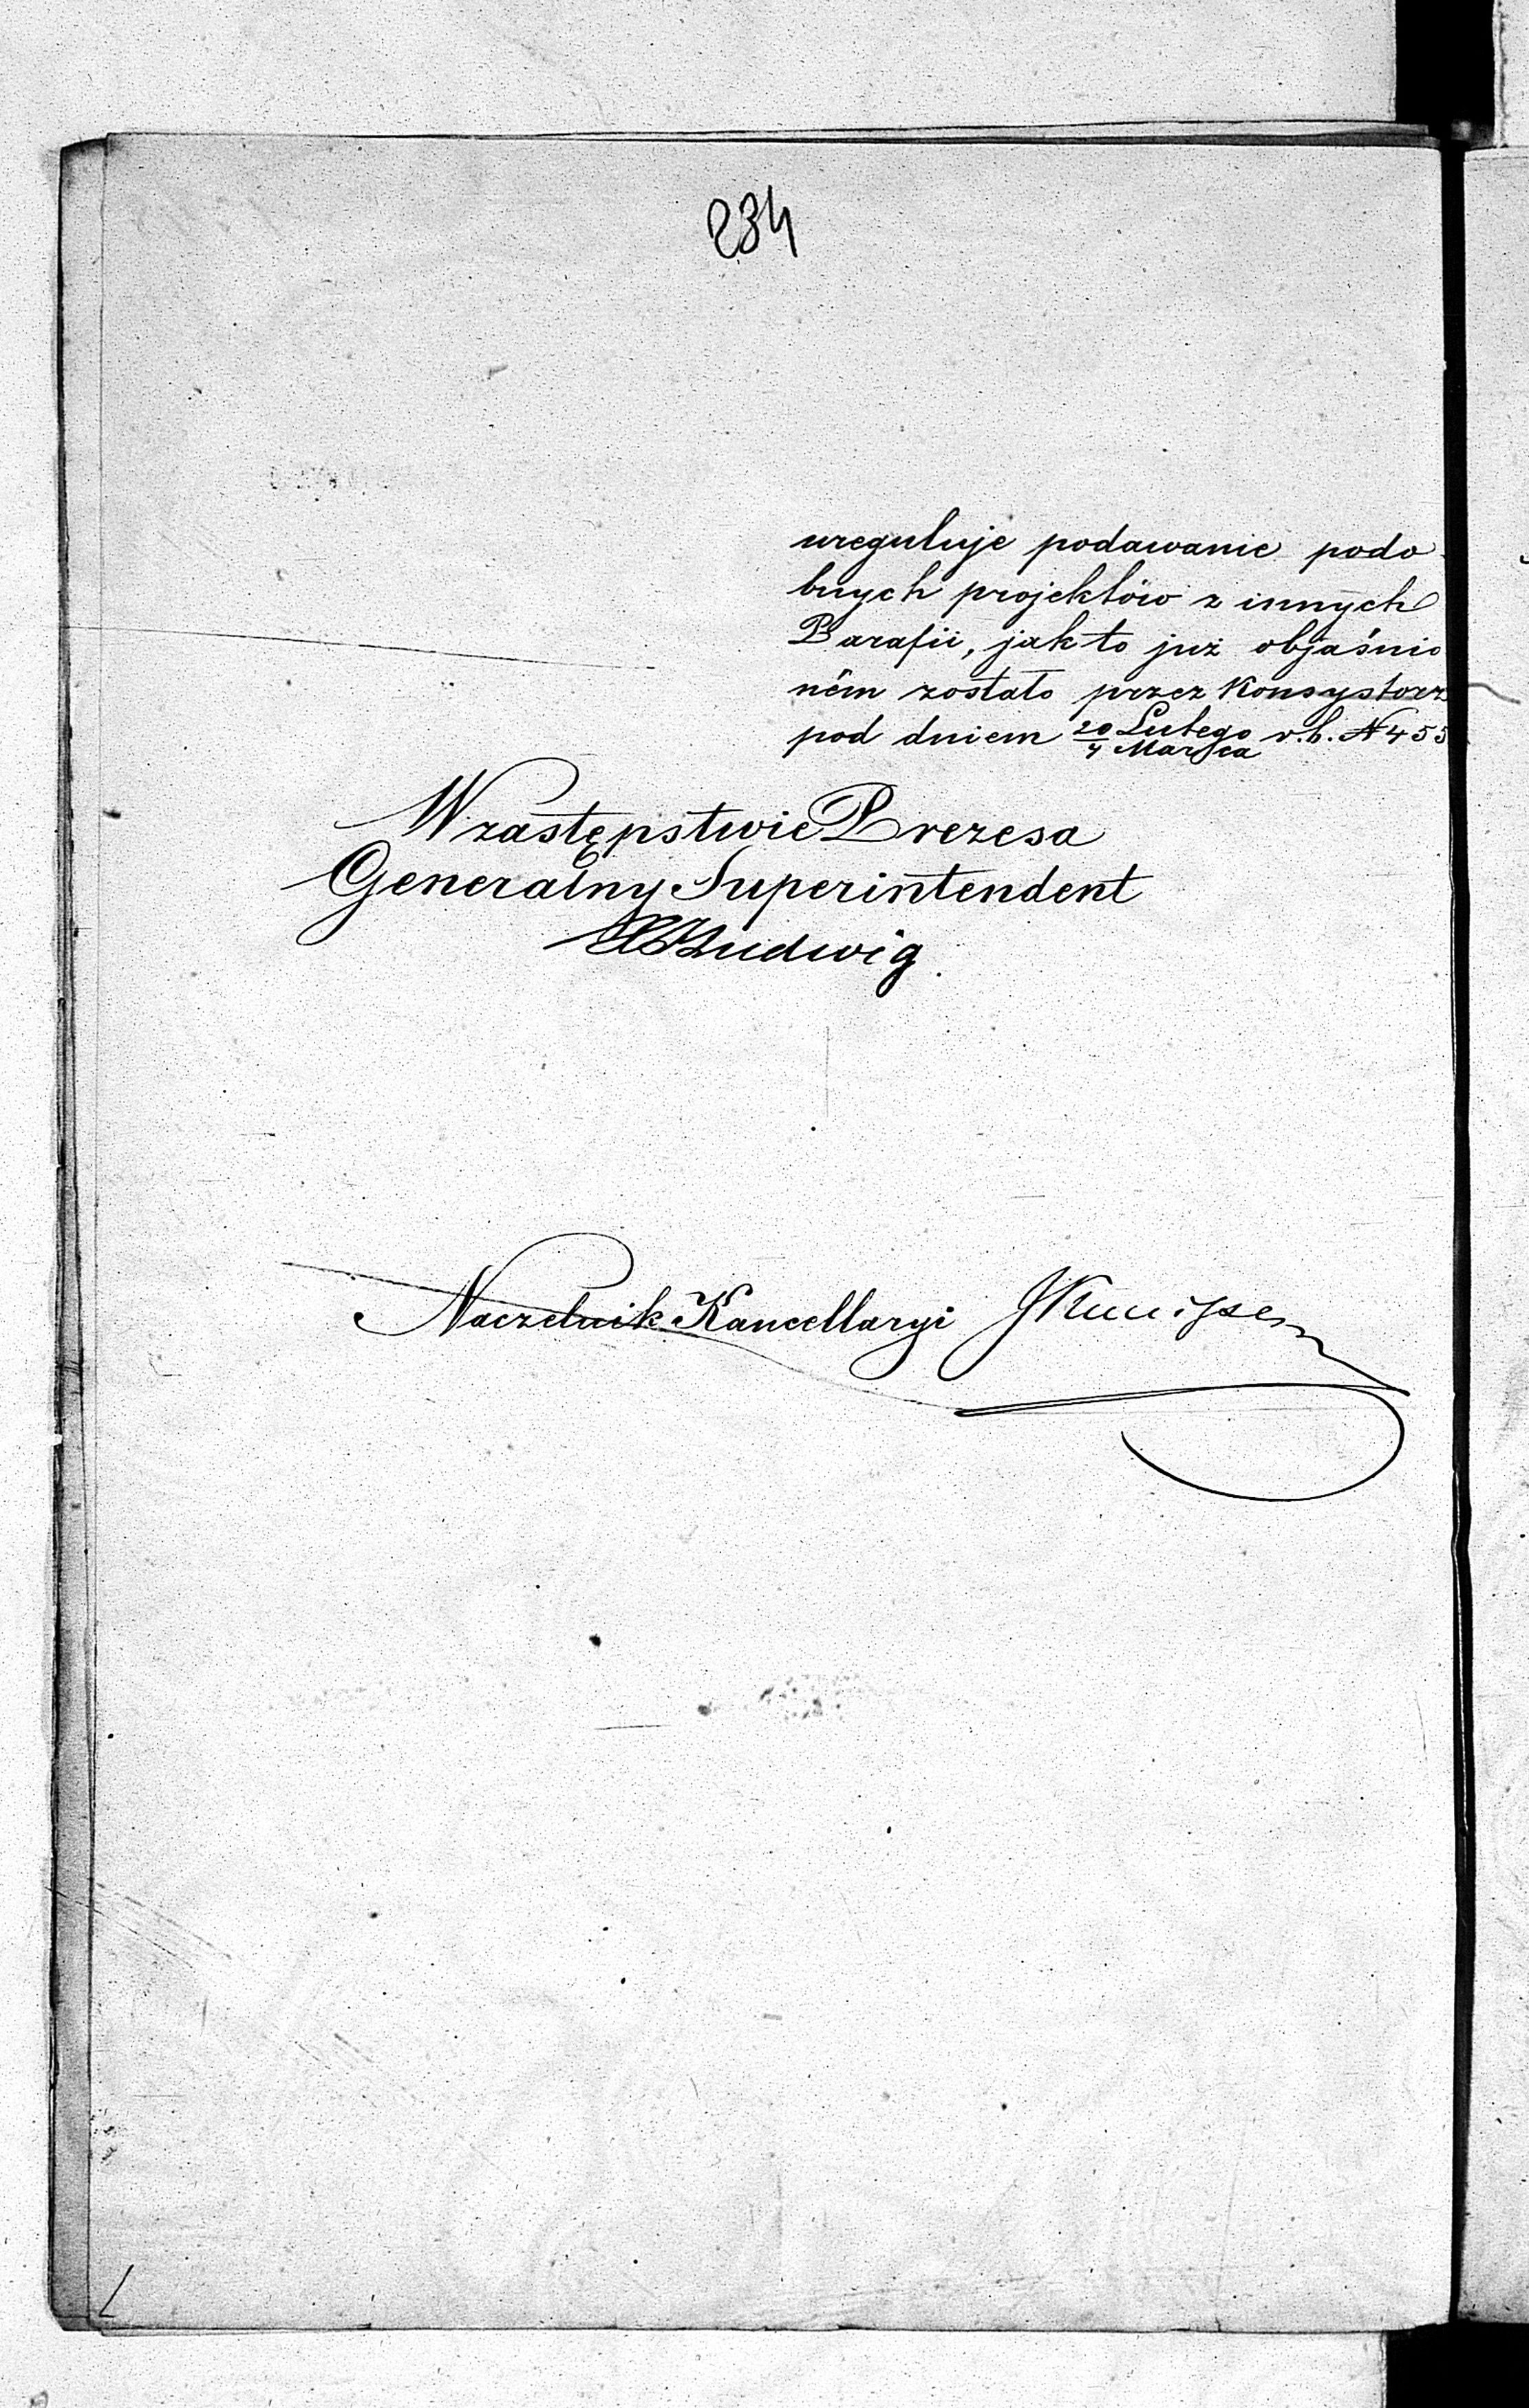 234
ureguluje podawanie podo-
bnych projektów z innych
Parafii, jak to już objaśnio
ném zostało przez Konsystorz
pod dniem 20 Lutego / 4 Marca r. b. N 455
W zastępstwie Prezesa
Generalny Superintendent
Ludwig.
Naczelnik Kancellaryi